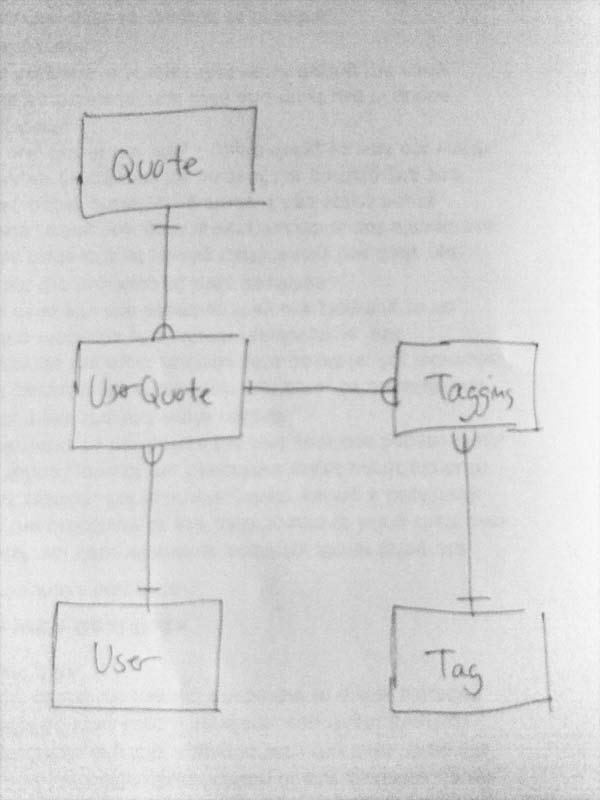 Quote
UserQuote
Tagging
User
Tag